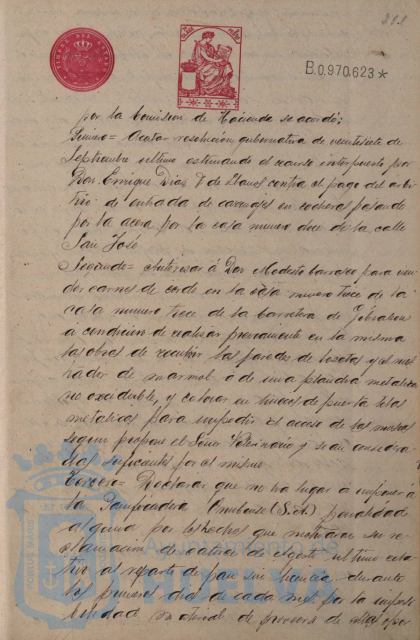 212
B.0,970,623*
por la Comision de Hacienda se acordó;
Primero= Acatar resolucion gubernativa de veintisiete de
Septiembre ultimo estimando el recurso interpuesto por
Don Enrique Diaz F. de Llanos contra el pago del arbi
trio de entrada de carruajes en cocheras pasando
por la acera por la casa numero doce de la calle
San José
Segundo= Autorizar á Don Modesto Barrasco para ven
der carnes de cerdo en la casa numero trece de la
Carretera de Gibraleon
á condicion de realizar previamente en la misma
las obras de recubrir las paredes de losetas y el mos
trador de marmol ó de una plancha metalica
no oxidable, y colocar en huecos de puerta telas
metalicas para impedir el acceso de las moscas
segun propone el Señor Veterinario y sean considera
das suficientes por el mismo
Tercero= Declarar que no ha lugar á imponer á
la Panificadora Onubense (S.A.) penalidad
alguna por los hechos que motivaron su re
clamacion de catorce de Agosto ultimo rela
tiva al reparto de pan sin licencia durante
los primeros dias de cada mes por la imposi
bilidad material de proveerse de
Ayuntamiento de
HUELVA